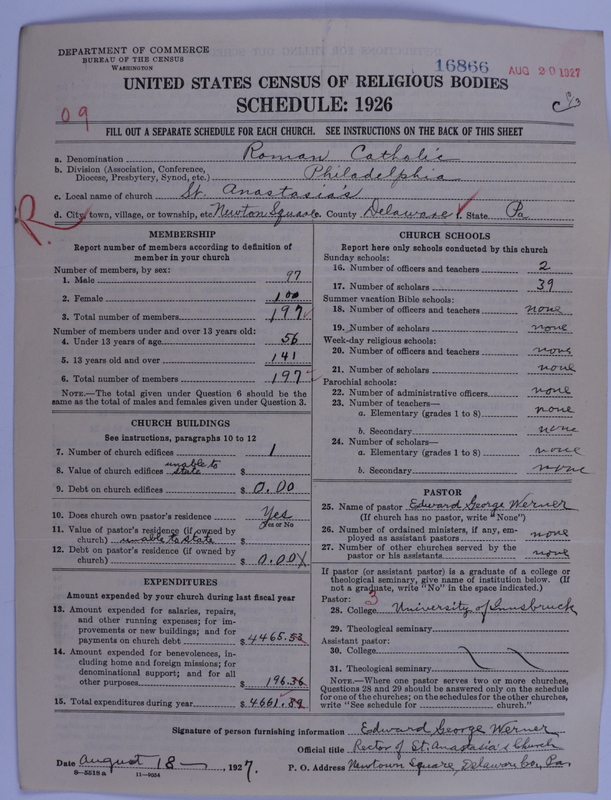 DEPARTMENT OF COMMERCE
BUREAU OF THE CENSUS
WASHINGTON
16866 AUG 20 1927
UNITED STATES CENSUS OF RELIGIOUS BODIES
SCHEDULE: 1926
09
FILL OUT A SEPARATE SCHEDULE FOR EACH CHURCH. SEE INSTRUCTIONS ON THE BACK OF THIS SHEET
a. Denomination Roman Catholic
b. Division (Association, Conference, Diocese, Presbytery, Synod, etc.) Philadelphia
c. Local name of church St. Anastasia's
d. City, town, village, or township, etc. Newton Square e. County Delaware f. State Pa
R.
MEMBERSHIP
Report number of members according to definition of
member in your church
Number of members, by sex:
1. Male 97
2. Female 100
3. Total number of members 197
Number of members under and over 13 years old:
4. Under 13 years of age 56
5. 13 years old and over 141
6. Total number of members 197
NOTE.—The total given under Question 6 should be
same as the total of males and females given under Question 3.
CHURCH BUILDINGS
See instructions, paragraphs 10 to 12
7. Number of church edifices 1
8. Value of church edifices unable to state $
9. Debt on church edifices $ 0.00
10. Does church own pastor's residence Yes
Yes or No
11. Value of pastor's residence (if owned by
church) unable to state $
12. Debt on pastor's residence (if owned by
church) $ 0.00
EXPENDITURES
Amount expended by your church during last fiscal year
13. Amount expended for salaries, repairs,
and other running expenses; for im-
provements or new buildings; and for
payments on church debt $ 4465.53
14. Amount expended for benevolences, in-
cluding home and foreign missions; for
denominational support; and for all
other purposes $ 196.36
15. Total expenditures during year $ 4661.89
CHURCH SCHOOLS
Report here only schools conducted by this church
Sunday schools:
16. Number of officers and teachers 2
17. Number of scholars 39
Summer vacation Bible schools:
18. Number of officers and teachers none
19. Number of scholars none
Week-day religious schools:
20. Number of officers and teachers none
21. Number of scholars none
Parochial schools:
22. Number of administrative officers none
23. Number of teachers—
a. Elementary (grades 1 to 8) none
b. Secondary none
24. Number of scholars—
a. Elementary (grades 1 to 8) none
b. Secondary none
PASTOR
25. Name of pastor Edward George Werner
(If church has no pastor, write "None")
26. Number of ordained ministers, if any, em-
ployed as assistant pastors none
27. Number of other churches served by the
pastor or his assistants none
If pastor (or assistant pastor) is a graduate of a college or
theological seminary, give name of institution below. (If
not a graduate, write "No" in the space indicated.)
Pastor: 3
28. College University of Innsbruck
29. Theological seminary
Assistant pastor:
30. College
31. Theological seminary
NOTE.—Where one pastor serves two or more churches,
Questions 28 and 29 should be answered only on the schedule
for one of the churches; on the schedules for the other churches,
write "See schedule for church."
Signature of person furnishing information Edward George Werner
Official title Rector of St. Anastasia's Church
Date August 18, 1927. P. O. Address Newtown Square, Delaware Co., Pa.
8—5518a 11—9554